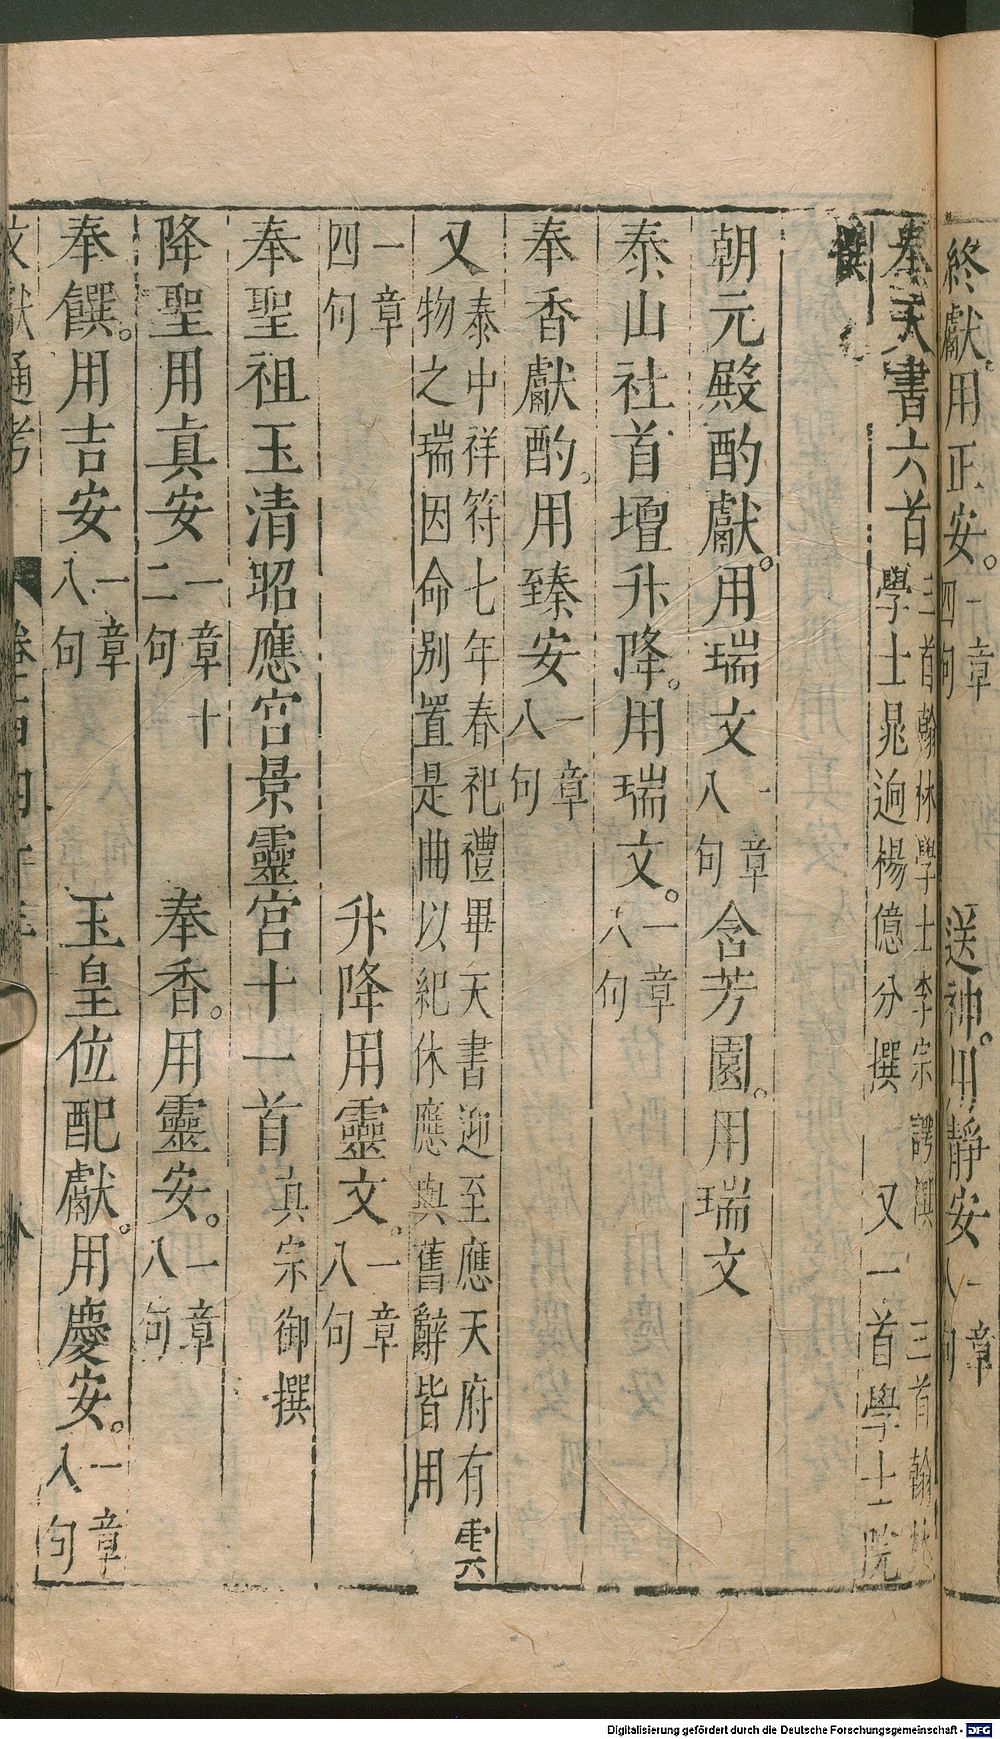 終獻。用正安。一章四句 送神。用靜安一章八句
奉天書六首三首翰林學士李宗諤撰 三首翰林學士晁迥楊億分撰 又一首學士院
撰
朝元殿酌獻。用瑞文一章八句 含芳園。用瑞文
泰山社首壇升降。用瑞文。一章八句
奉香獻酌。用臻安一章八句
又大中祥符七年春祀禮畢天書迎至應天府有雲物之瑞因命別置是曲以紀休應與舊辭皆用
一章四句 升降用靈文。一章八句
奉聖祖玉清昭應宮景靈宮十一首真宗御撰
降聖用真安一章十二句 奉香。用靈安。一章八句
奉饌。用吉安一章八句 玉皇位配獻。用慶安。一章八句
文獻通考 卷一百四十三 八
Digitalisierung gefördert durch die Deutsche Forschungsgemeinschaft - DFG